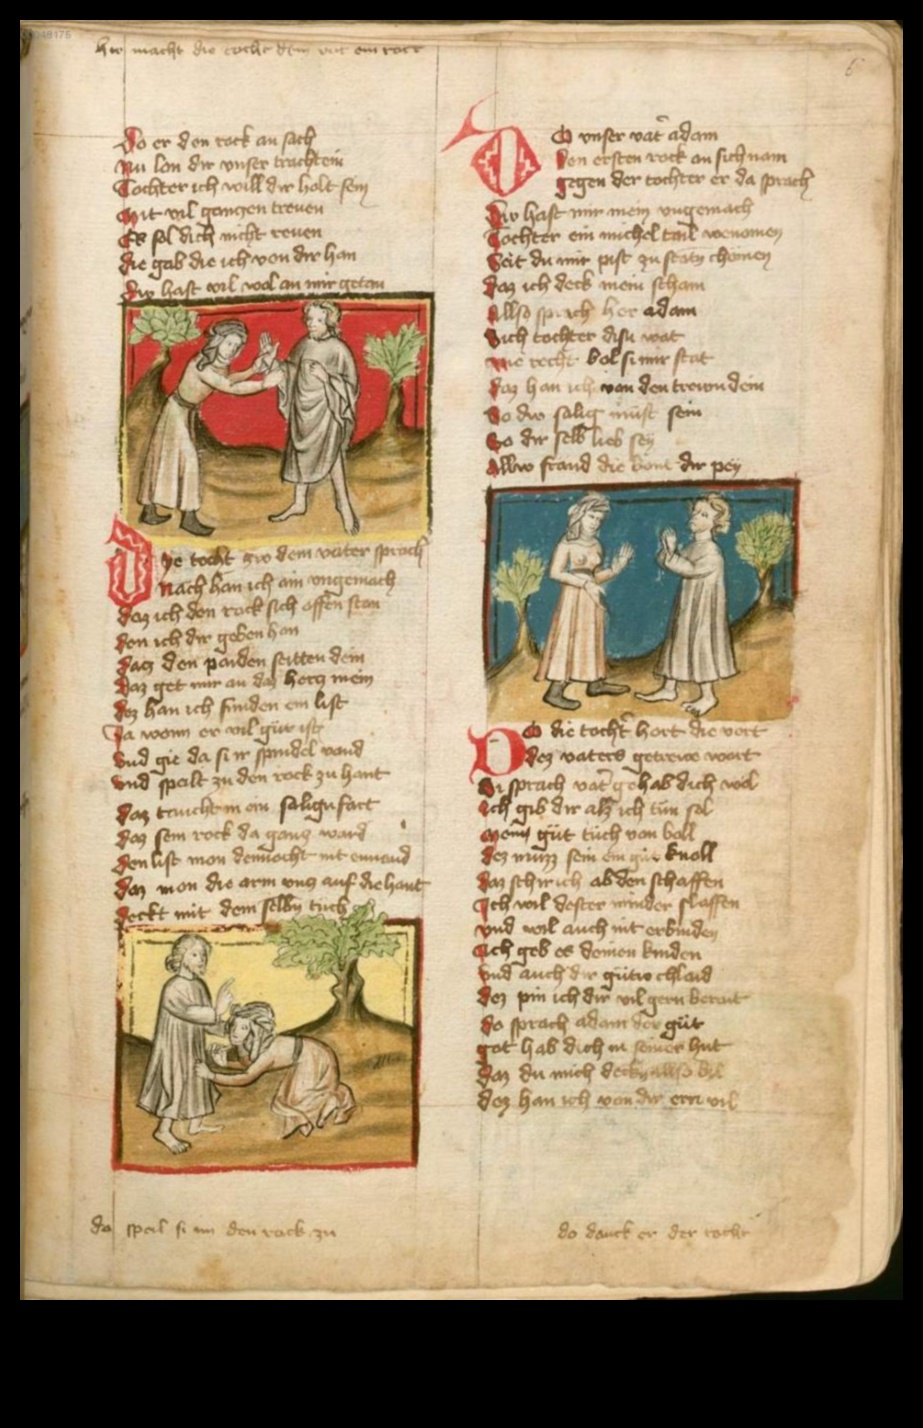 00048175
hie macht die tocht dem vat ein rock
6
Do er den rock an sach
Nu lon dir unser trachtein
Tochter ich will dir holt sein
Mit vil gantzen treuen
Es sol dich nicht reuen
die gab die ich von dir han
du hast vil wol an mir getan
Dye tocht zw dem vater sprach
Nach han ich ain ungemach
daz ich den rock sich offen stan
den ich dir geben han
datz den paiden seitten dein
daz get mir an daz hertz mein
dez han ich funden ein list
Ja wenn er vil gut ist
Und gie da si ir spindel vand
Und speilt zu den rock zu hant
daz truchtein ein
daz sein rock da gantz ward
den list mon dennocht nit envand
daz mon die arm untz auf die hant
deckt mit dem selbn tuch
da speil si im den rock zu
DO unser vat adam
den ersten rock an sich nam
gegen der tochter er da sprach
Dw hast mir mein ungemach
Tochter ein michel tail wenomen
Seit du mir pist zu statn chomen
daz ich deck mein scham
Allso sprach her adam
Sich tochter disu wat
wie recht bol si mir stat
daz han ich von den trewn dein
Do dw salig must sein
So dir selb lieb sey
Allw stand die dir pey
DO die tocht hort die vort
dez vaters getrewe wort
Si sprach vat gehab dich wol
Ich gib dir alz ich tun sol
gut tuch von boll
dez muzz sein ein gut knoll
daz schir ich ab den schaffen
Ich wil dester minder slaffen
Und wil auch nit erbinden
Ich geb es deinen kinden
Und auch dir gutw chlaid
dez pin ich dir vil gern berait
do sprach adam der gut
got hab dich in seiner hut
daz du mich deckn allso bil
dez han ich von dir ern vil
do danck er der tocht